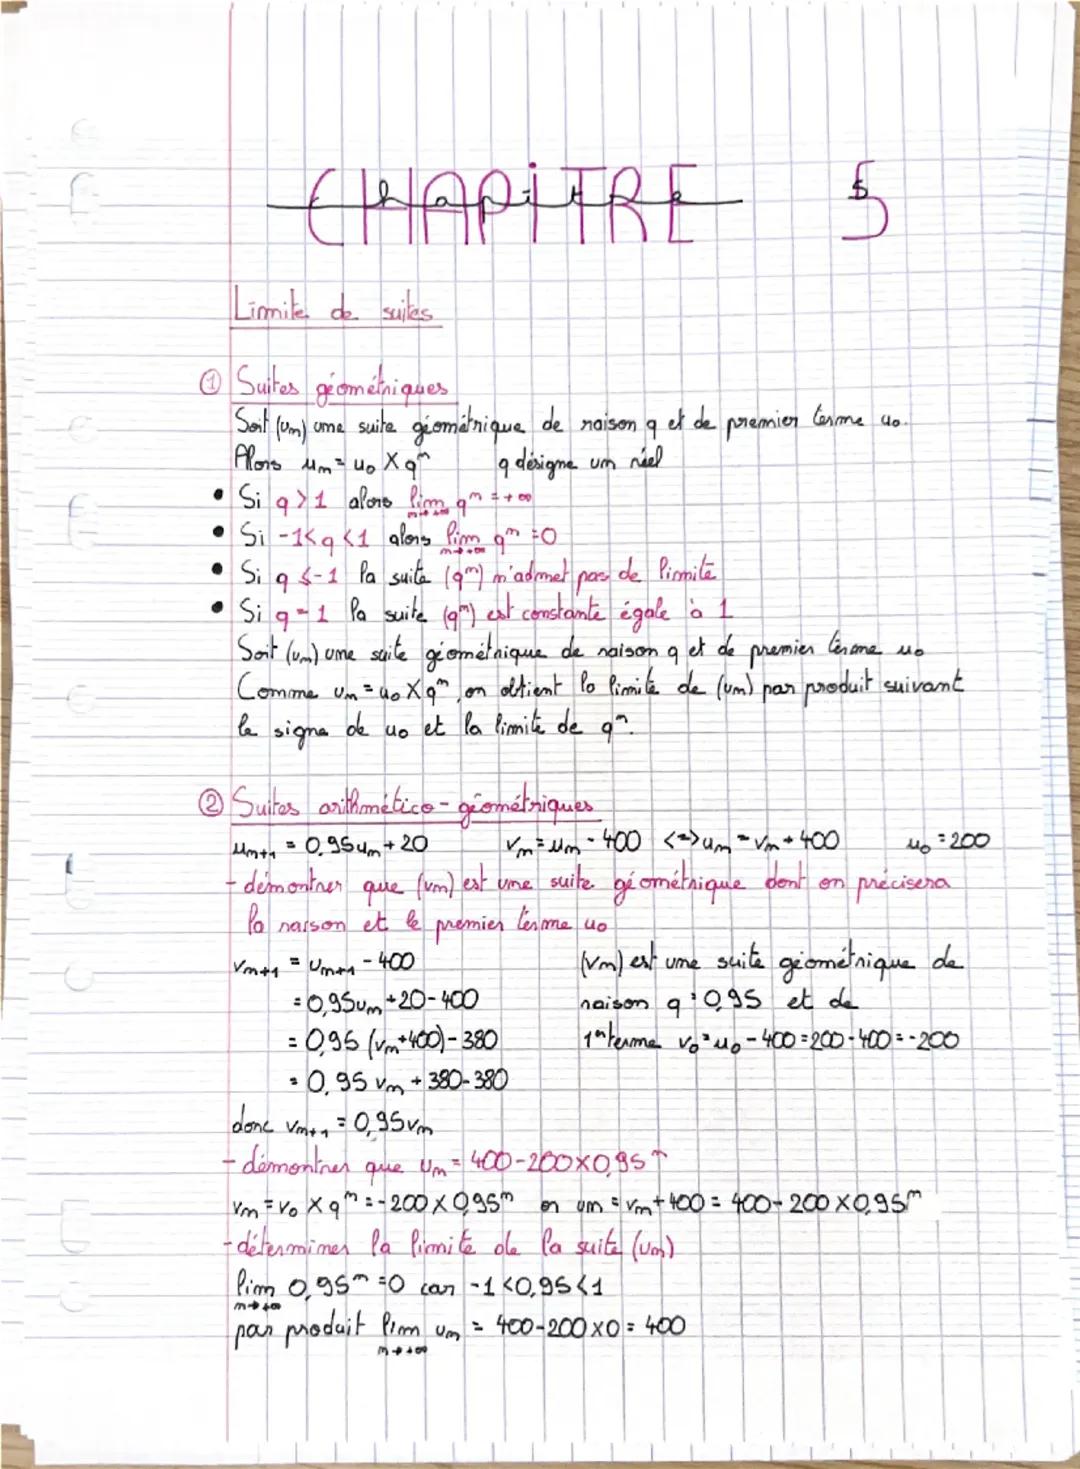 CHAPITRE 5
Chapitre 5
Limite de suites
① Suites géométriques
Soit (un) une suite géométrique de raison q et de premier terme u₀.
Alors un = u₀ × qⁿ q désigne un réel
• Si q > 1 alors lim qⁿ = +∞
n→+∞
• Si -1<q<1 alors lim qⁿ = 0
n→+∞
• Si q ≤ -1 la suite (qⁿ) n'admet pas de limite
• Si q = 1 la suite (qⁿ) est constante égale à 1
Soit (un) une suite géométrique de raison q et de premier terme u₀
Comme un = u₀ × qⁿ, on obtient la limite de (un) par produit suivant
le signe de u₀ et la limite de qⁿ.
② Suites arithmético-géométriques
un+1 = 0,95un + 20 vn = un - 400 <=> un = vn + 400 u₀ = 200
- démontrer que (vn) est une suite géométrique dont on précisera
la raison et le premier terme u₀
vn+1 = un+1 - 400 (vn) est une suite géométrique de
= 0,95un + 20 - 400 raison q = 0,95 et de
= 0,95 (vn + 400) - 380 1er terme v₀ = u₀ - 400 = 200 - 400 = -200
= 0,95 vn + 380 - 380
donc vn+1 = 0,95vn
- démontrer que un = 400 - 200 × 0,95ⁿ
vn = v₀ × qⁿ = -200 × 0,95ⁿ or un = vn + 400 = 400 - 200 × 0,95ⁿ
- déterminer la limite de la suite (un)
lim 0,95ⁿ = 0 car -1 < 0,95 < 1
n→+∞
par produit lim un = 400 - 200 × 0 = 400
n→+∞